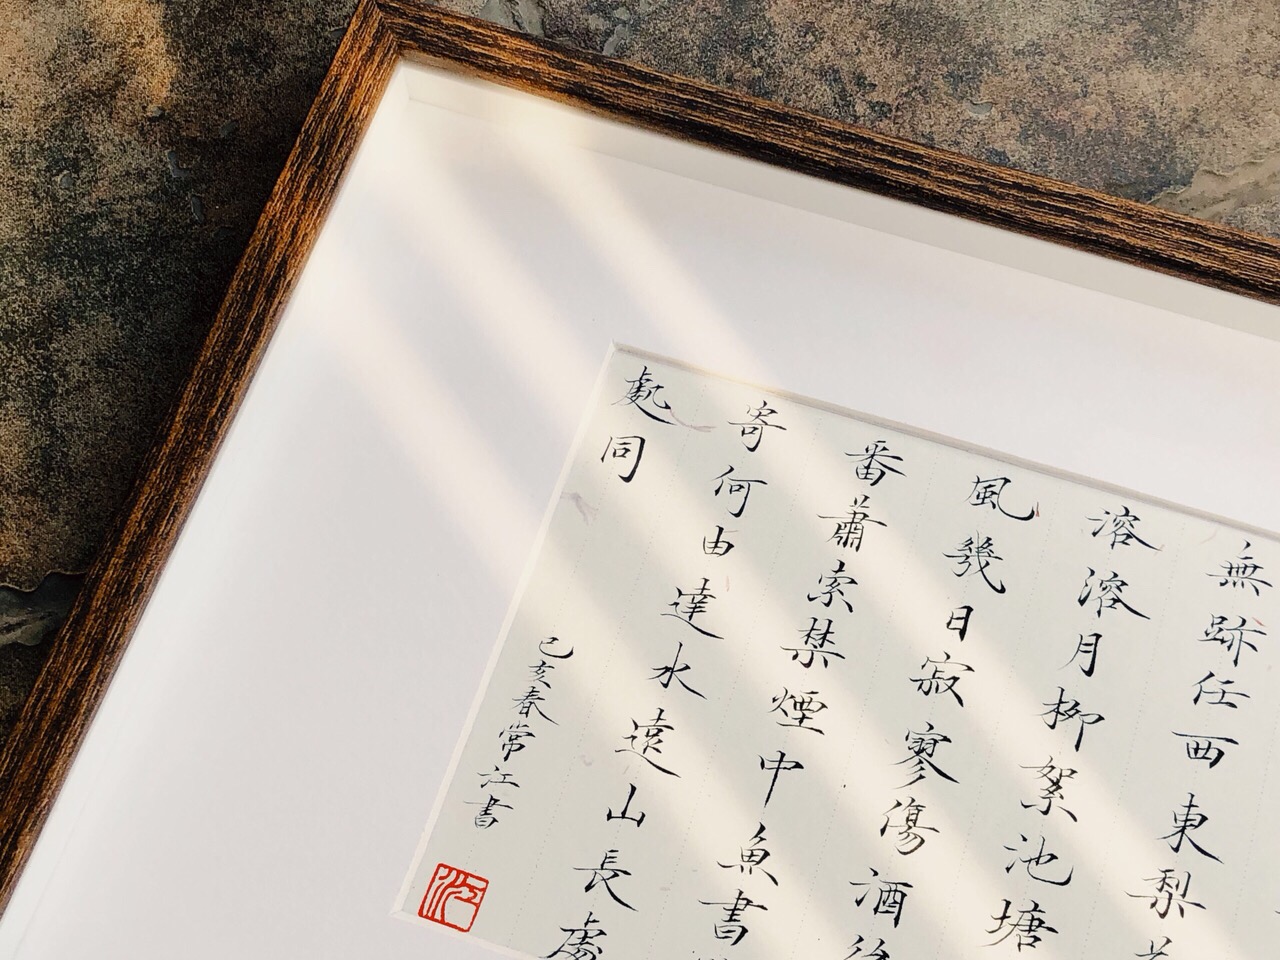 無跡任西東梨
溶溶月柳絮池塘
風幾日寂寥傷酒後
番蕭索禁煙中魚書
寄何由達水遠山長處
處同
己亥春常江書